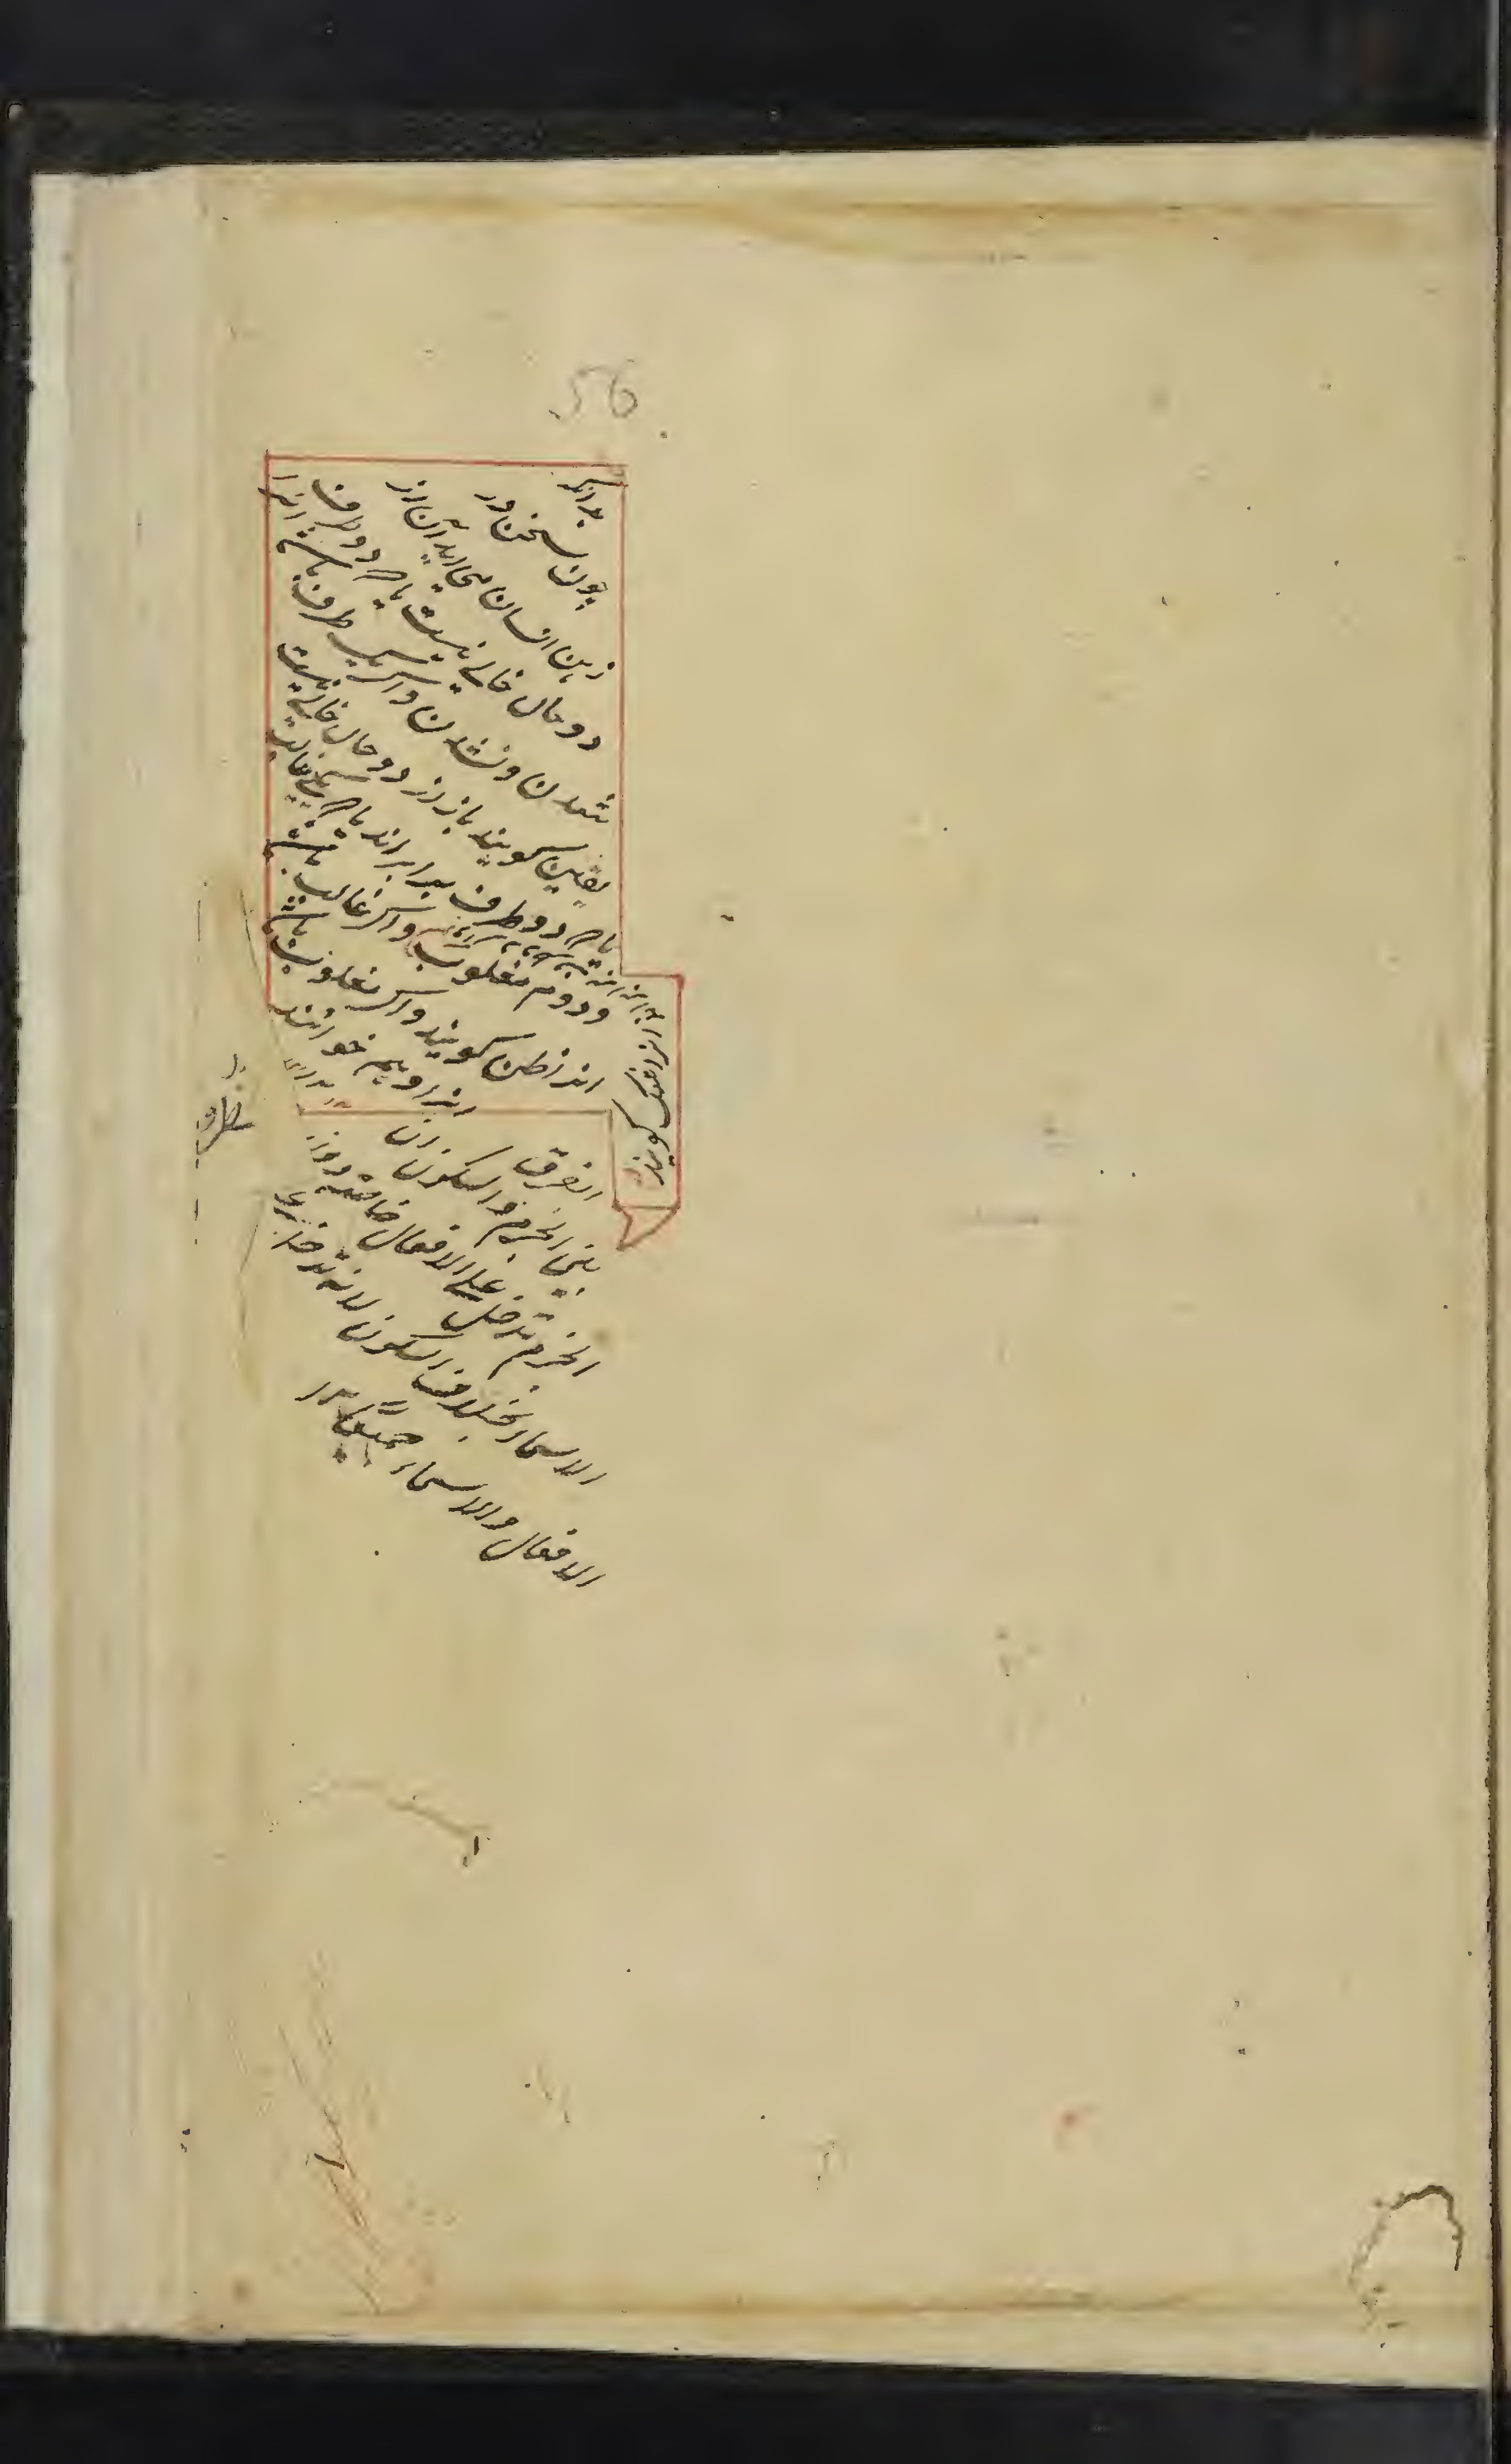 56
بدانکه
چون سخن در
ذهن انسان می‌اید آن از
دو حال خالی نیست یا هر دو طرف
شدن و نشدن و اگر یک طرف باشد انرا
یقین گویند باز از دو حال خالی نیست
یا هر دو طرف برابراند یا هر یکی غالب
و دوم مغلوب و اگر غالب باشد
انرا ظن گویند و اگر مغلوب باشد
انرا وهم خوانند
برابراند
انرا شک گویند
الفرق
بین الجزم والسکون ان
الجزم تدخل علی الافعال خاصة دون
الاسماء بخلاف السکون لانه تدخل علی
الافعال والاسماء جمیعا